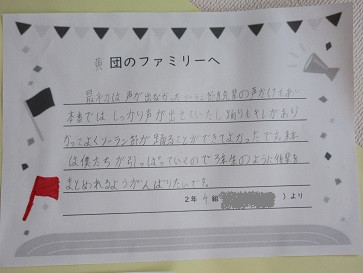 団のファミリーへ
最初は声が出なかったソーラン節も
本番ではしっかり声が出せていたし、踊りもキレがあり
かっこよくソーラン節が踊ることができてよかったです。来年
は僕たちが引っぱっていくので3年生のように
まとめれるようがんばりたいです。
2年 組 ）より